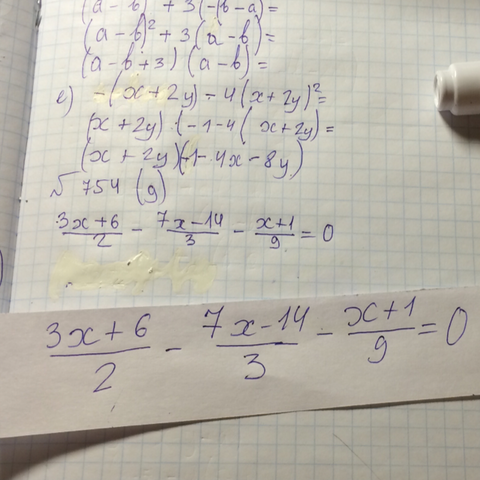 (a-b)² + 3(-b-a)=
(a-b)² + 3(a-b)=
(a-b+3)(a-b)=
e) -(x+2y)-4(x+2y)²=
(x+2y)·(-1-4(x+2y)=
(x+2y)(-1-4x-8y)
√ 754 (g)
3x+6/2 - 7x-14/3 - x+1/9 = 0
3x+6/2 - 7x-14/3 - x+1/9 = 0